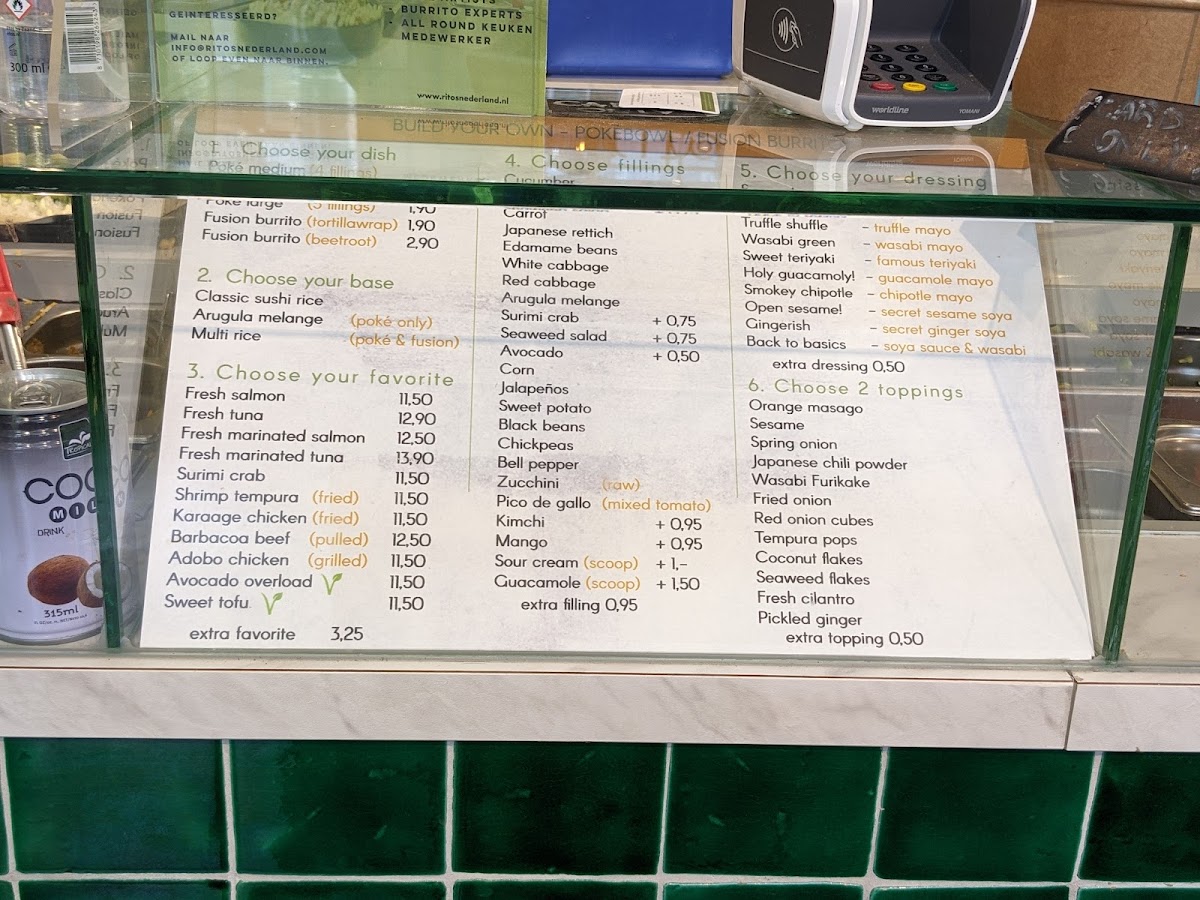 GEINTERESSEERD?
MAIL NAAR
INFO@RITOSNEDERLAND.COM
OF LOOP EVEN NAAR BINNEN.
- BURRITO EXPERTS
- ALL ROUND KEUKEN
MEDEWERKER
www.ritosnederland.nl
300 ml
worldline
YOMANI
BUILD YOUR OWN - POKEBOWL / FUSION BURRITO
1. Choose your dish
Poké medium (4 fillings)
Poke large (5 fillings) 1,90
Fusion burrito (tortillawrap) 1,90
Fusion burrito (beetroot) 2,90
2. Choose your base
Classic sushi rice
Arugula melange (poké only)
Multi rice (poké & fusion)
3. Choose your favorite
Fresh salmon 11,50
Fresh tuna 12,90
Fresh marinated salmon 12,50
Fresh marinated tuna 13,90
Surimi crab 11,50
Shrimp tempura (fried) 11,50
Karaage chicken (fried) 11,50
Barbacoa beef (pulled) 12,50
Adobo chicken (grilled) 11,50
Avocado overload 11,50
Sweet tofu 11,50
extra favorite 3,25
4. Choose fillings
Cucumber
Carrot
Japanese rettich
Edamame beans
White cabbage
Red cabbage
Arugula melange
Surimi crab + 0,75
Seaweed salad + 0,75
Avocado + 0,50
Corn
Jalapeños
Sweet potato
Black beans
Chickpeas
Bell pepper
Zucchini (raw)
Pico de gallo (mixed tomato)
Kimchi + 0,95
Mango + 0,95
Sour cream (scoop) + 1,-
Guacamole (scoop) + 1,50
extra filling 0,95
5. Choose your dressing
Truffle shuffle - truffle mayo
Wasabi green - wasabi mayo
Sweet teriyaki - famous teriyaki
Holy guacamoly! - guacamole mayo
Smokey chipotle - chipotle mayo
Open sesame! - secret sesame soya
Gingerish - secret ginger soya
Back to basics - soya sauce & wasabi
extra dressing 0,50
6. Choose 2 toppings
Orange masago
Sesame
Spring onion
Japanese chili powder
Wasabi Furikake
Fried onion
Red onion cubes
Tempura pops
Coconut flakes
Seaweed flakes
Fresh cilantro
Pickled ginger
extra topping 0,50
DRINK
315ml